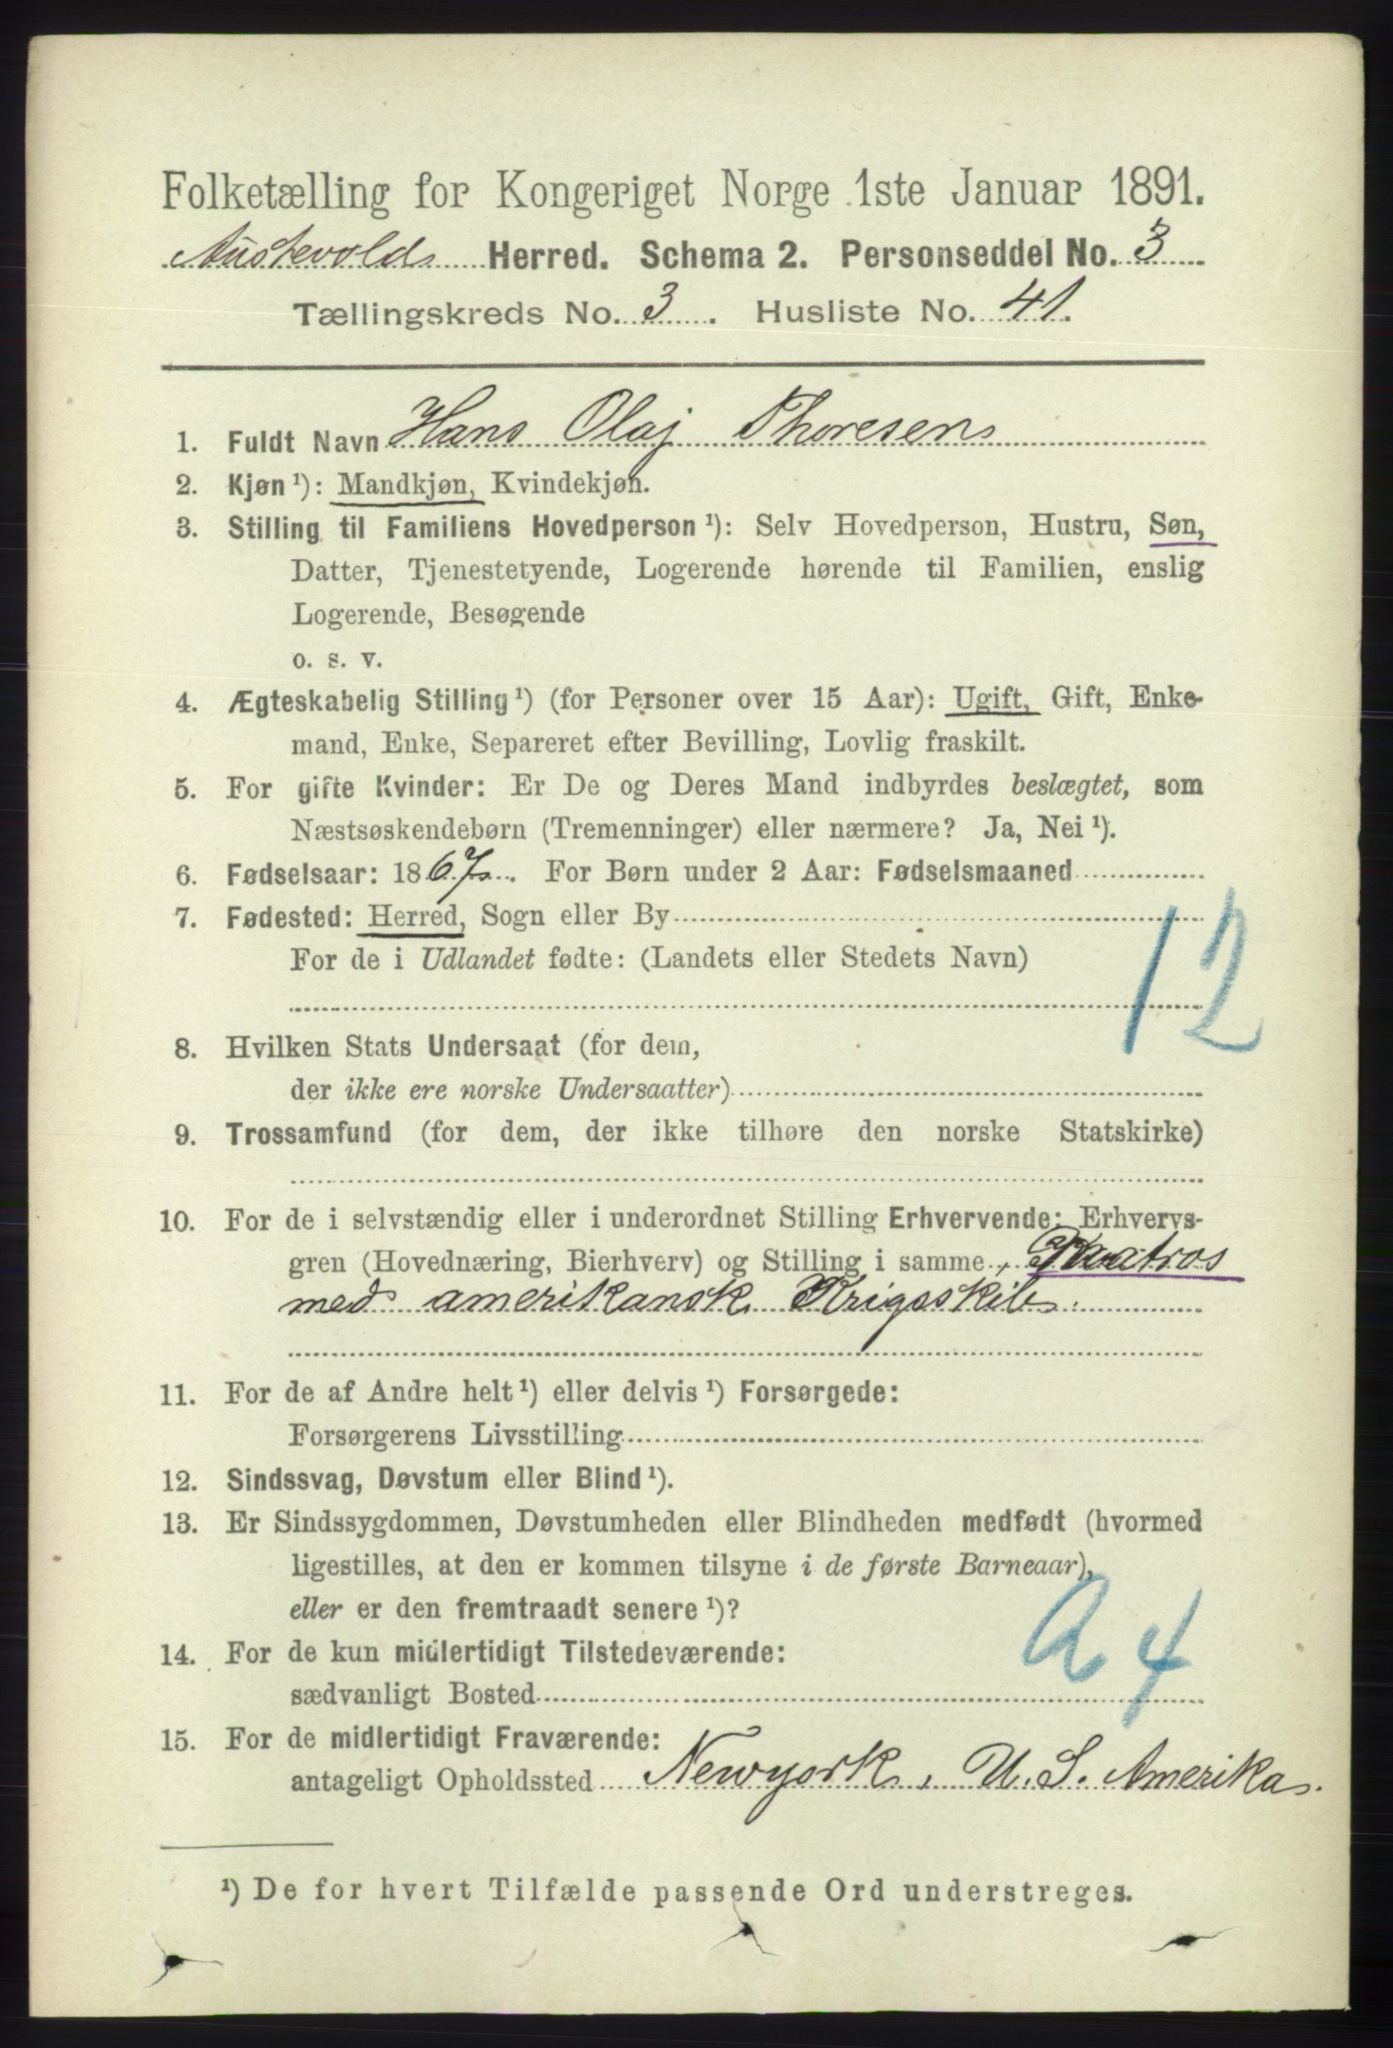 Folketælling for Kongeriget Norge 1ste Januar 1891.
Austevolds Herred. Schema 2. Personseddel No. 3
Tællingskreds No. 3. Husliste No. 41.
1. Fuldt Navn Hans Olaj Thoresen
2. Kjøn ¹): Mandkjøn, Kvindekjøn.
3. Stilling til Familiens Hovedperson ¹): Selv Hovedperson, Hustru, Søn,
Datter, Tjenestetyende, Logerende hørende til Familien, enslig
Logerende, Besøgende
o. s. v.
4. Ægteskabelig Stilling ¹) (for Personer over 15 Aar): Ugift, Gift, Enke-
mand, Enke, Separeret efter Bevilling, Lovlig fraskilt.
5. For gifte Kvinder: Er De og Deres Mand indbyrdes beslægtet, som
Næstsøskendebørn (Tremenninger) eller nærmere? Ja, Nei ¹).
6. Fødselsaar: 1867. For Børn under 2 Aar: Fødselsmaaned
7. Fødested: Herred, Sogn eller By
For de i Udlandet fødte: (Landets eller Stedets Navn)
12
8. Hvilken Stats Undersaat (for dem,
der ikke ere norske Undersaatter)
9. Trossamfund (for dem, der ikke tilhøre den norske Statskirke)
10. For de i selvstændig eller i underordnet Stilling Erhvervende: Erhvervs-
gren (Hovednæring, Bierhverv) og Stilling i samme, Matros
med amerikansk Krigsskib.
11. For de af Andre helt ¹) eller delvis ¹) Forsørgede:
Forsørgerens Livsstilling
12. Sindssvag, Døvstum eller Blind ¹).
13. Er Sindssygdommen, Døvstumheden eller Blindheden medfødt (hvormed
ligestilles, at den er kommen tilsyne i de første Barneaar),
eller er den fremtraadt senere ¹)?
a 4
14. For de kun midlertidigt Tilstedeværende:
sædvanligt Bosted
15. For de midlertidigt Fraværende:
antageligt Opholdssted Newyork, U. S. Amerika.
¹) De for hvert Tilfælde passende Ord understreges.